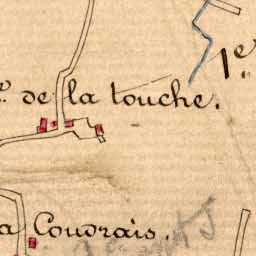 de la touche.
1e
a Coudrais.